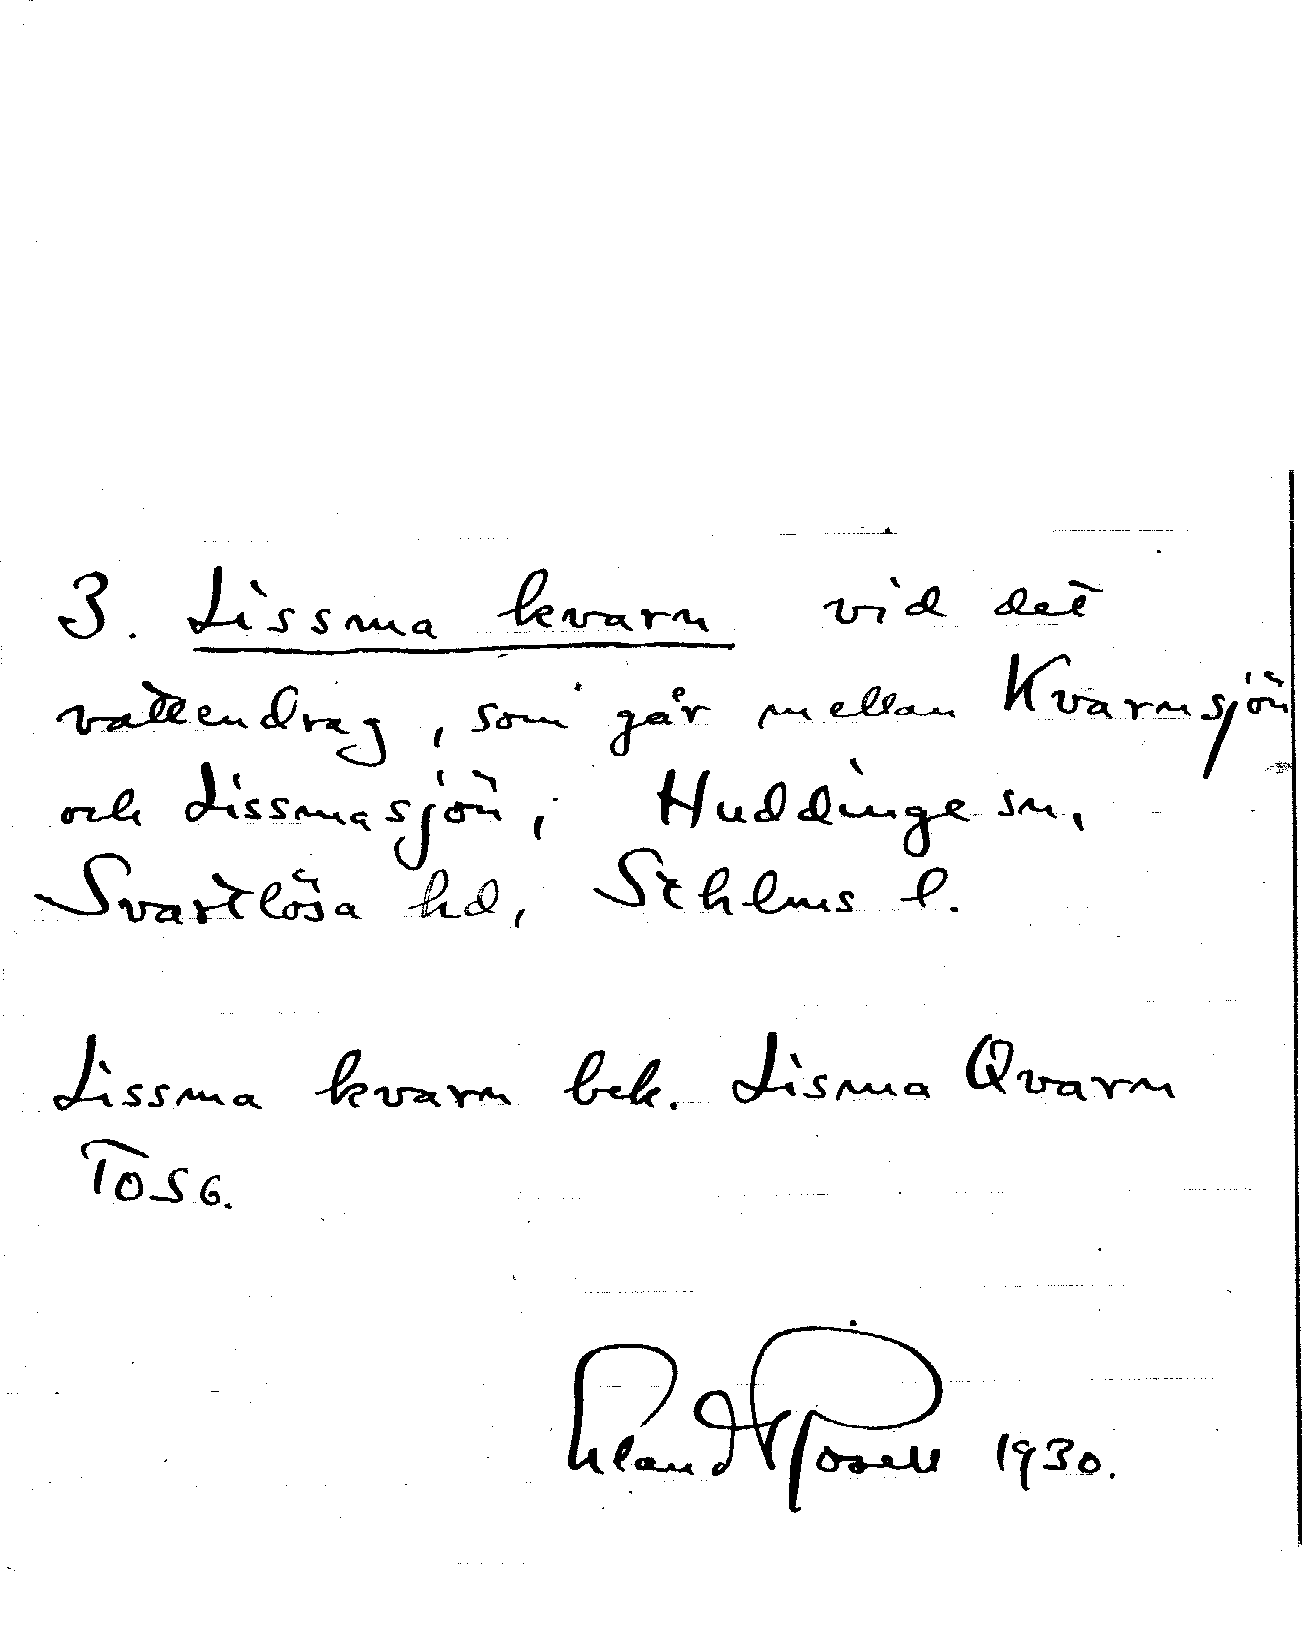 3. Lissma kvarn vid det
vattendrag, som går mellan Kvarnsjön
och Lissmasjön, Huddinge sn,
Svartlösa hd, Sthlms l.
Lissma kvarn bek. Lisma Qvarn
TOS6.
Erland Rosell 1930.